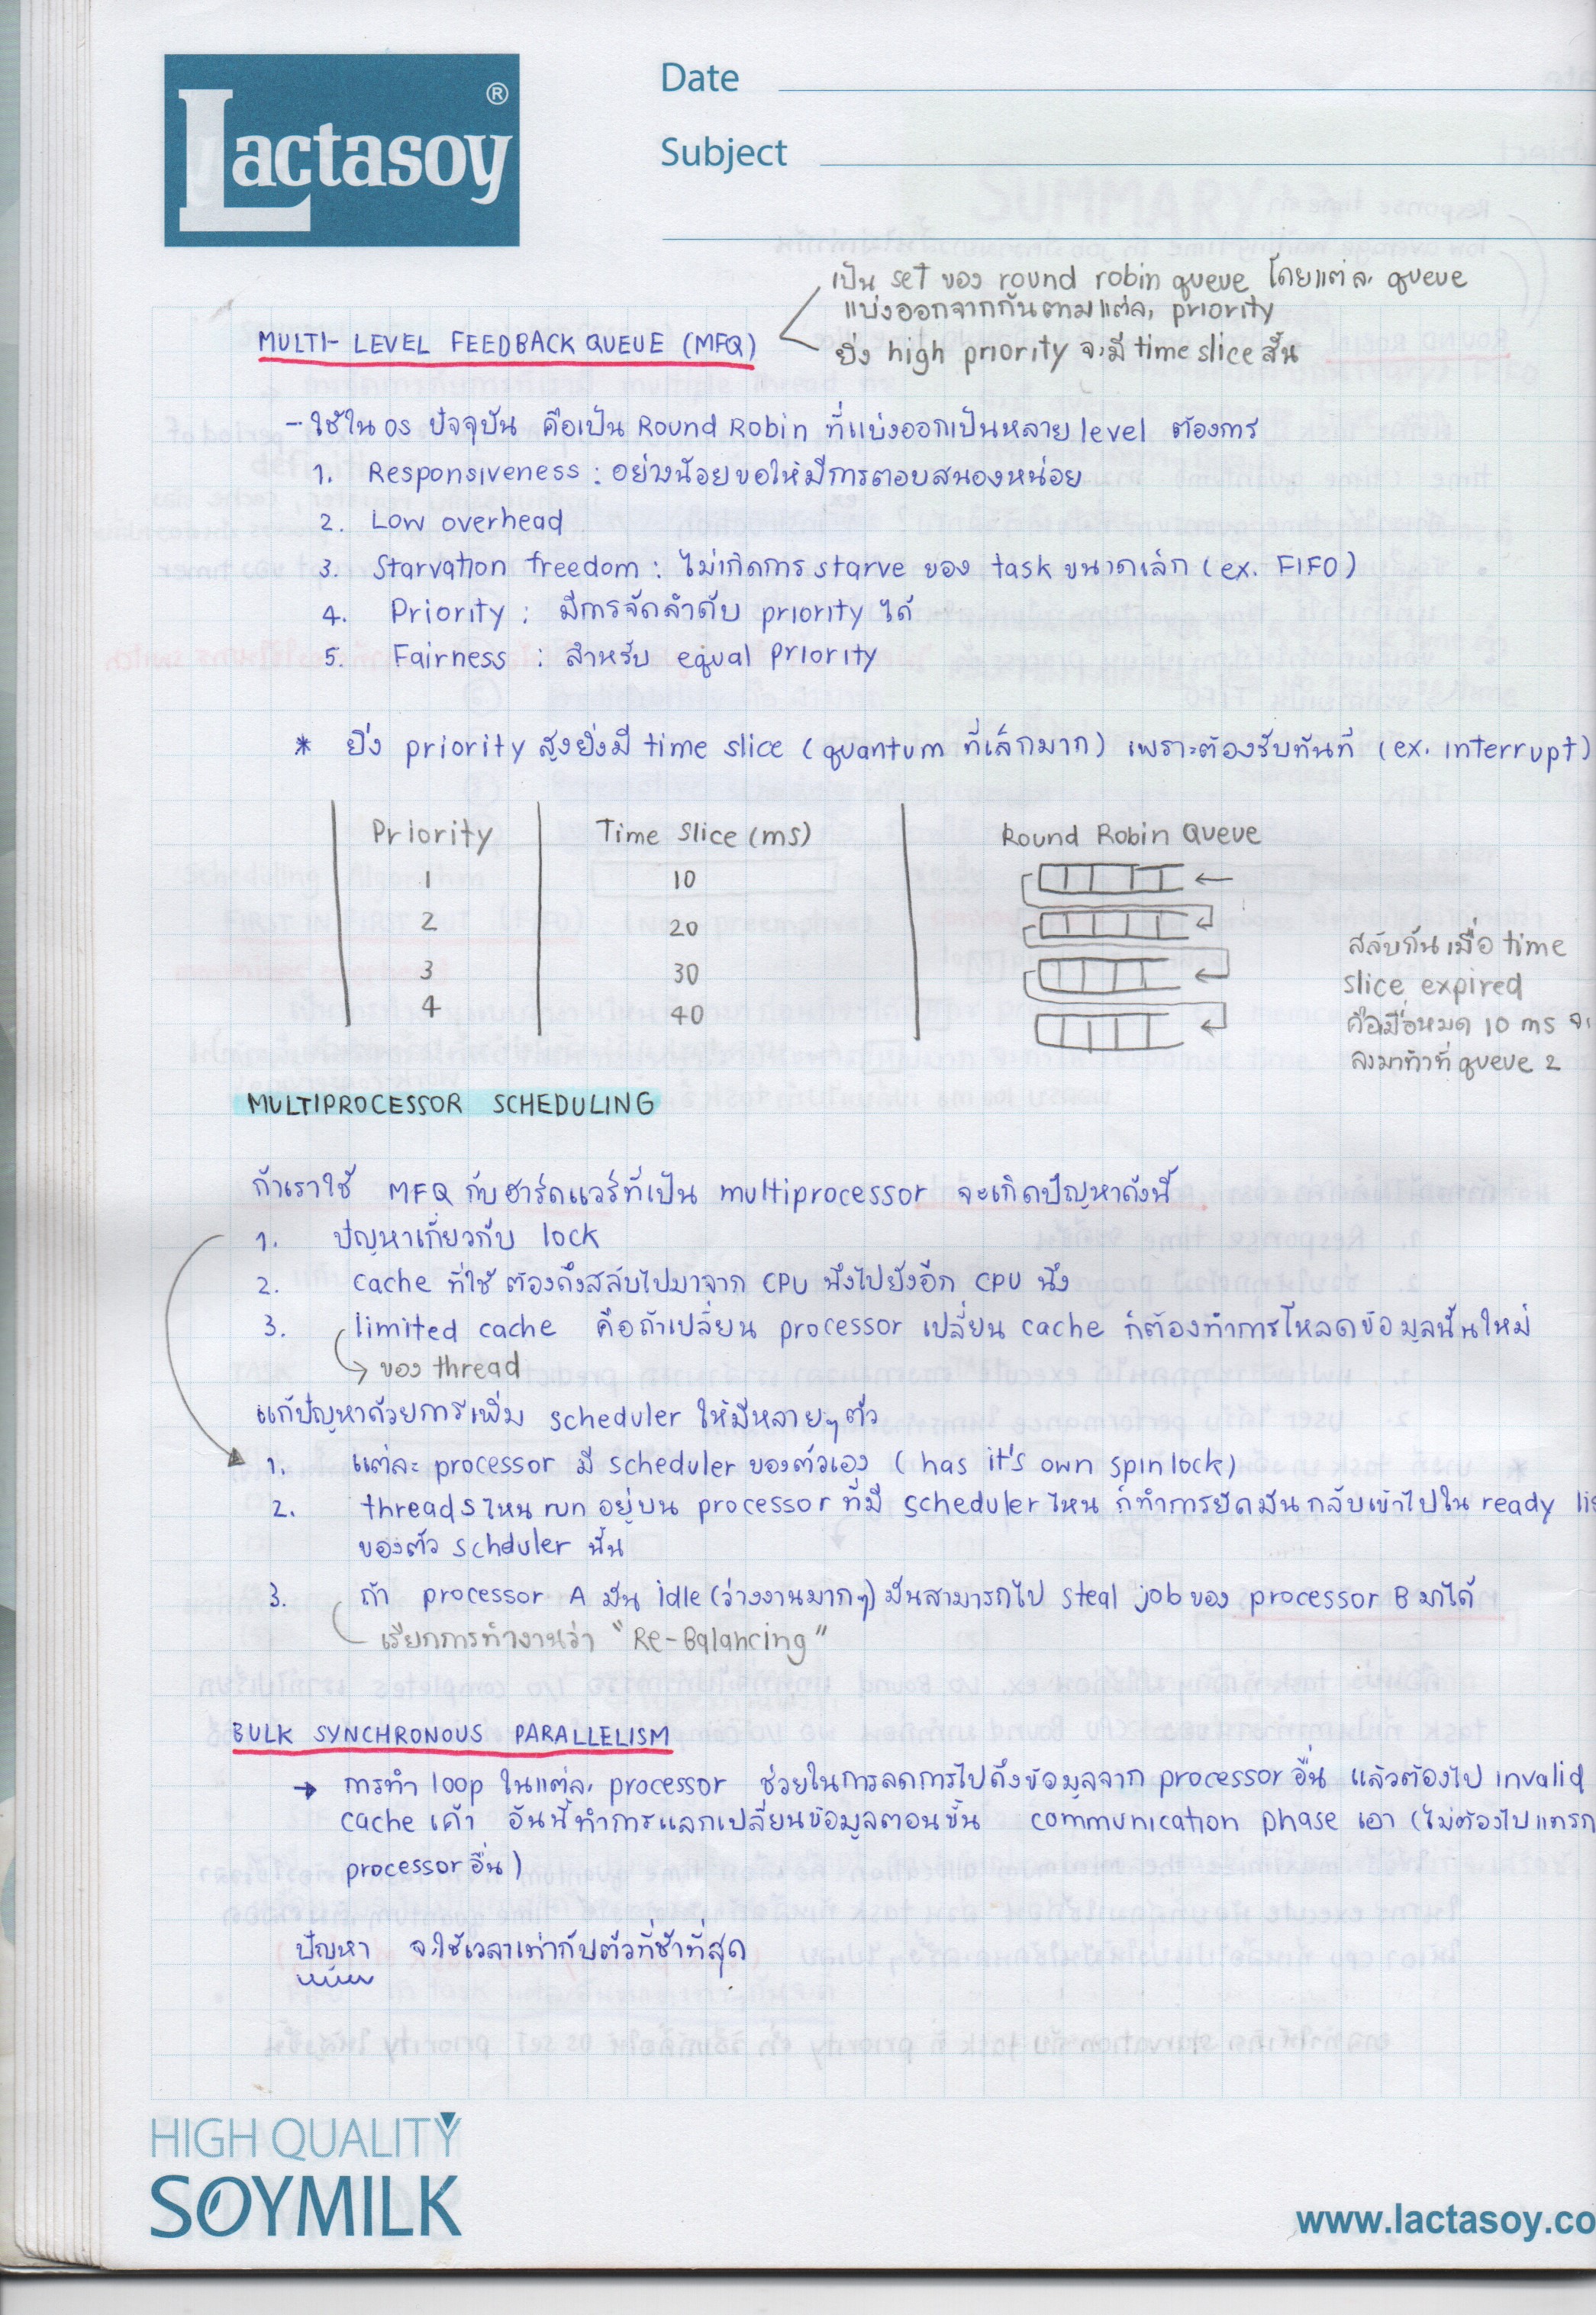 Lactasoy ®
Date
Subject
เป็น set ของ round robin queue โดยแต่ละ queue
แบ่งออกจากกันตามแต่ละ priority
MULTI-LEVEL FEEDBACK QUEUE (MFQ)
ยิ่ง high priority จะมี time slice สั้น
- ใช้ใน OS ปัจจุบัน คือเป็น Round Robin ที่แบ่งออกเป็นหลาย level ต้องการ
1. Responsiveness : อย่างน้อยขอให้มีการตอบสนองหน่อย
2. Low overhead
3. Starvation freedom : ไม่เกิดการ starve ของ task ขนาดเล็ก (ex. FIFO)
4. Priority : มีการจัดลำดับ priority ได้
5. Fairness : สำหรับ equal priority
* ยิ่ง priority สูงยิ่งมี time slice (quantum ที่เล็กมาก) เพราะต้องรับทันที (ex. interrupt)
Priority Time Slice (ms) Round Robin Queue
1 10
2 20
3 30
4 40
สลับกันเมื่อ time
slice expired
คือเมื่อหมด 10 ms จะ
ลงมาทำที่ queue 2
MULTIPROCESSOR SCHEDULING
ถ้าเราใช้ MFQ กับฮาร์ดแวร์ที่เป็น multiprocessor จะเกิดปัญหาดังนี้
1. ปัญหาเกี่ยวกับ lock
2. cache ที่ใช้ ต้องดึงสลับไปมาจาก CPU นึงไปยังอีก CPU นึง
3. limited cache คือถ้าเปลี่ยน processor เปลี่ยน cache ก็ต้องทำการโหลดข้อมูลนั้นใหม่
ของ thread
แก้ปัญหาด้วยการเพิ่ม scheduler ให้มีหลายๆตัว
1. แต่ละ processor มี scheduler ของตัวเอง (has it's own spinlock)
2. threadsไหน run อยู่บน processor ที่มี scheduler ไหน ก็ทำการยัดมันกลับเข้าไปใน ready lis
ของตัว schduler นั้น
3. ถ้า processor A มัน idle (ว่างงานมากๆ) มันสามารถไป steal job ของ processor B มาได้
เรียกการทำงานว่า "Re-Balancing"
BULK SYNCHRONOUS PARALLELISM
→ การทำ loop ในแต่ละ processor ช่วยในการลดการไปดึงข้อมูลจาก processor อื่น แล้วต้องไป invalid
cache เค้า อันนี้ทำการแลกเปลี่ยนข้อมูลตอนขั้น communication phase เอา (ไม่ต้องไปแทรก
processor อื่น)
ปัญหา จะใช้เวลาเท่ากับตัวที่ช้าที่สุด
HIGH QUALITY
SOYMILK
www.lactasoy.co